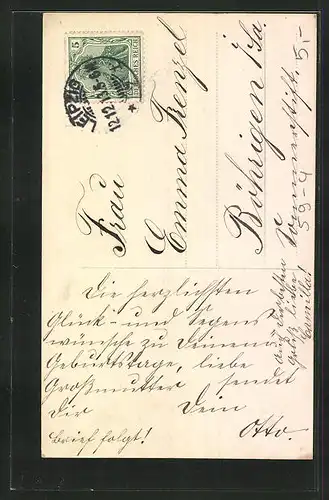 5
DEUTSCHES REICH
LEIPZIG
12.12.
Frau
Emma Frenzel
Böhrigen i/Sa.
59-4
5,-
Die herzlichsten
Glück- und Segens
wünsche zu Deinem
Geburtstage, liebe
Großmutter sendet
Dir Dein
Otto.
Brief folgt!
liebe
Camilla!